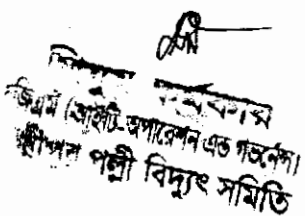 কর্মকার
জিএম (আইটি-অপারেশন এন্ড গভর্নেন্স)
পল্লী বিদ্যুৎ সমিতি